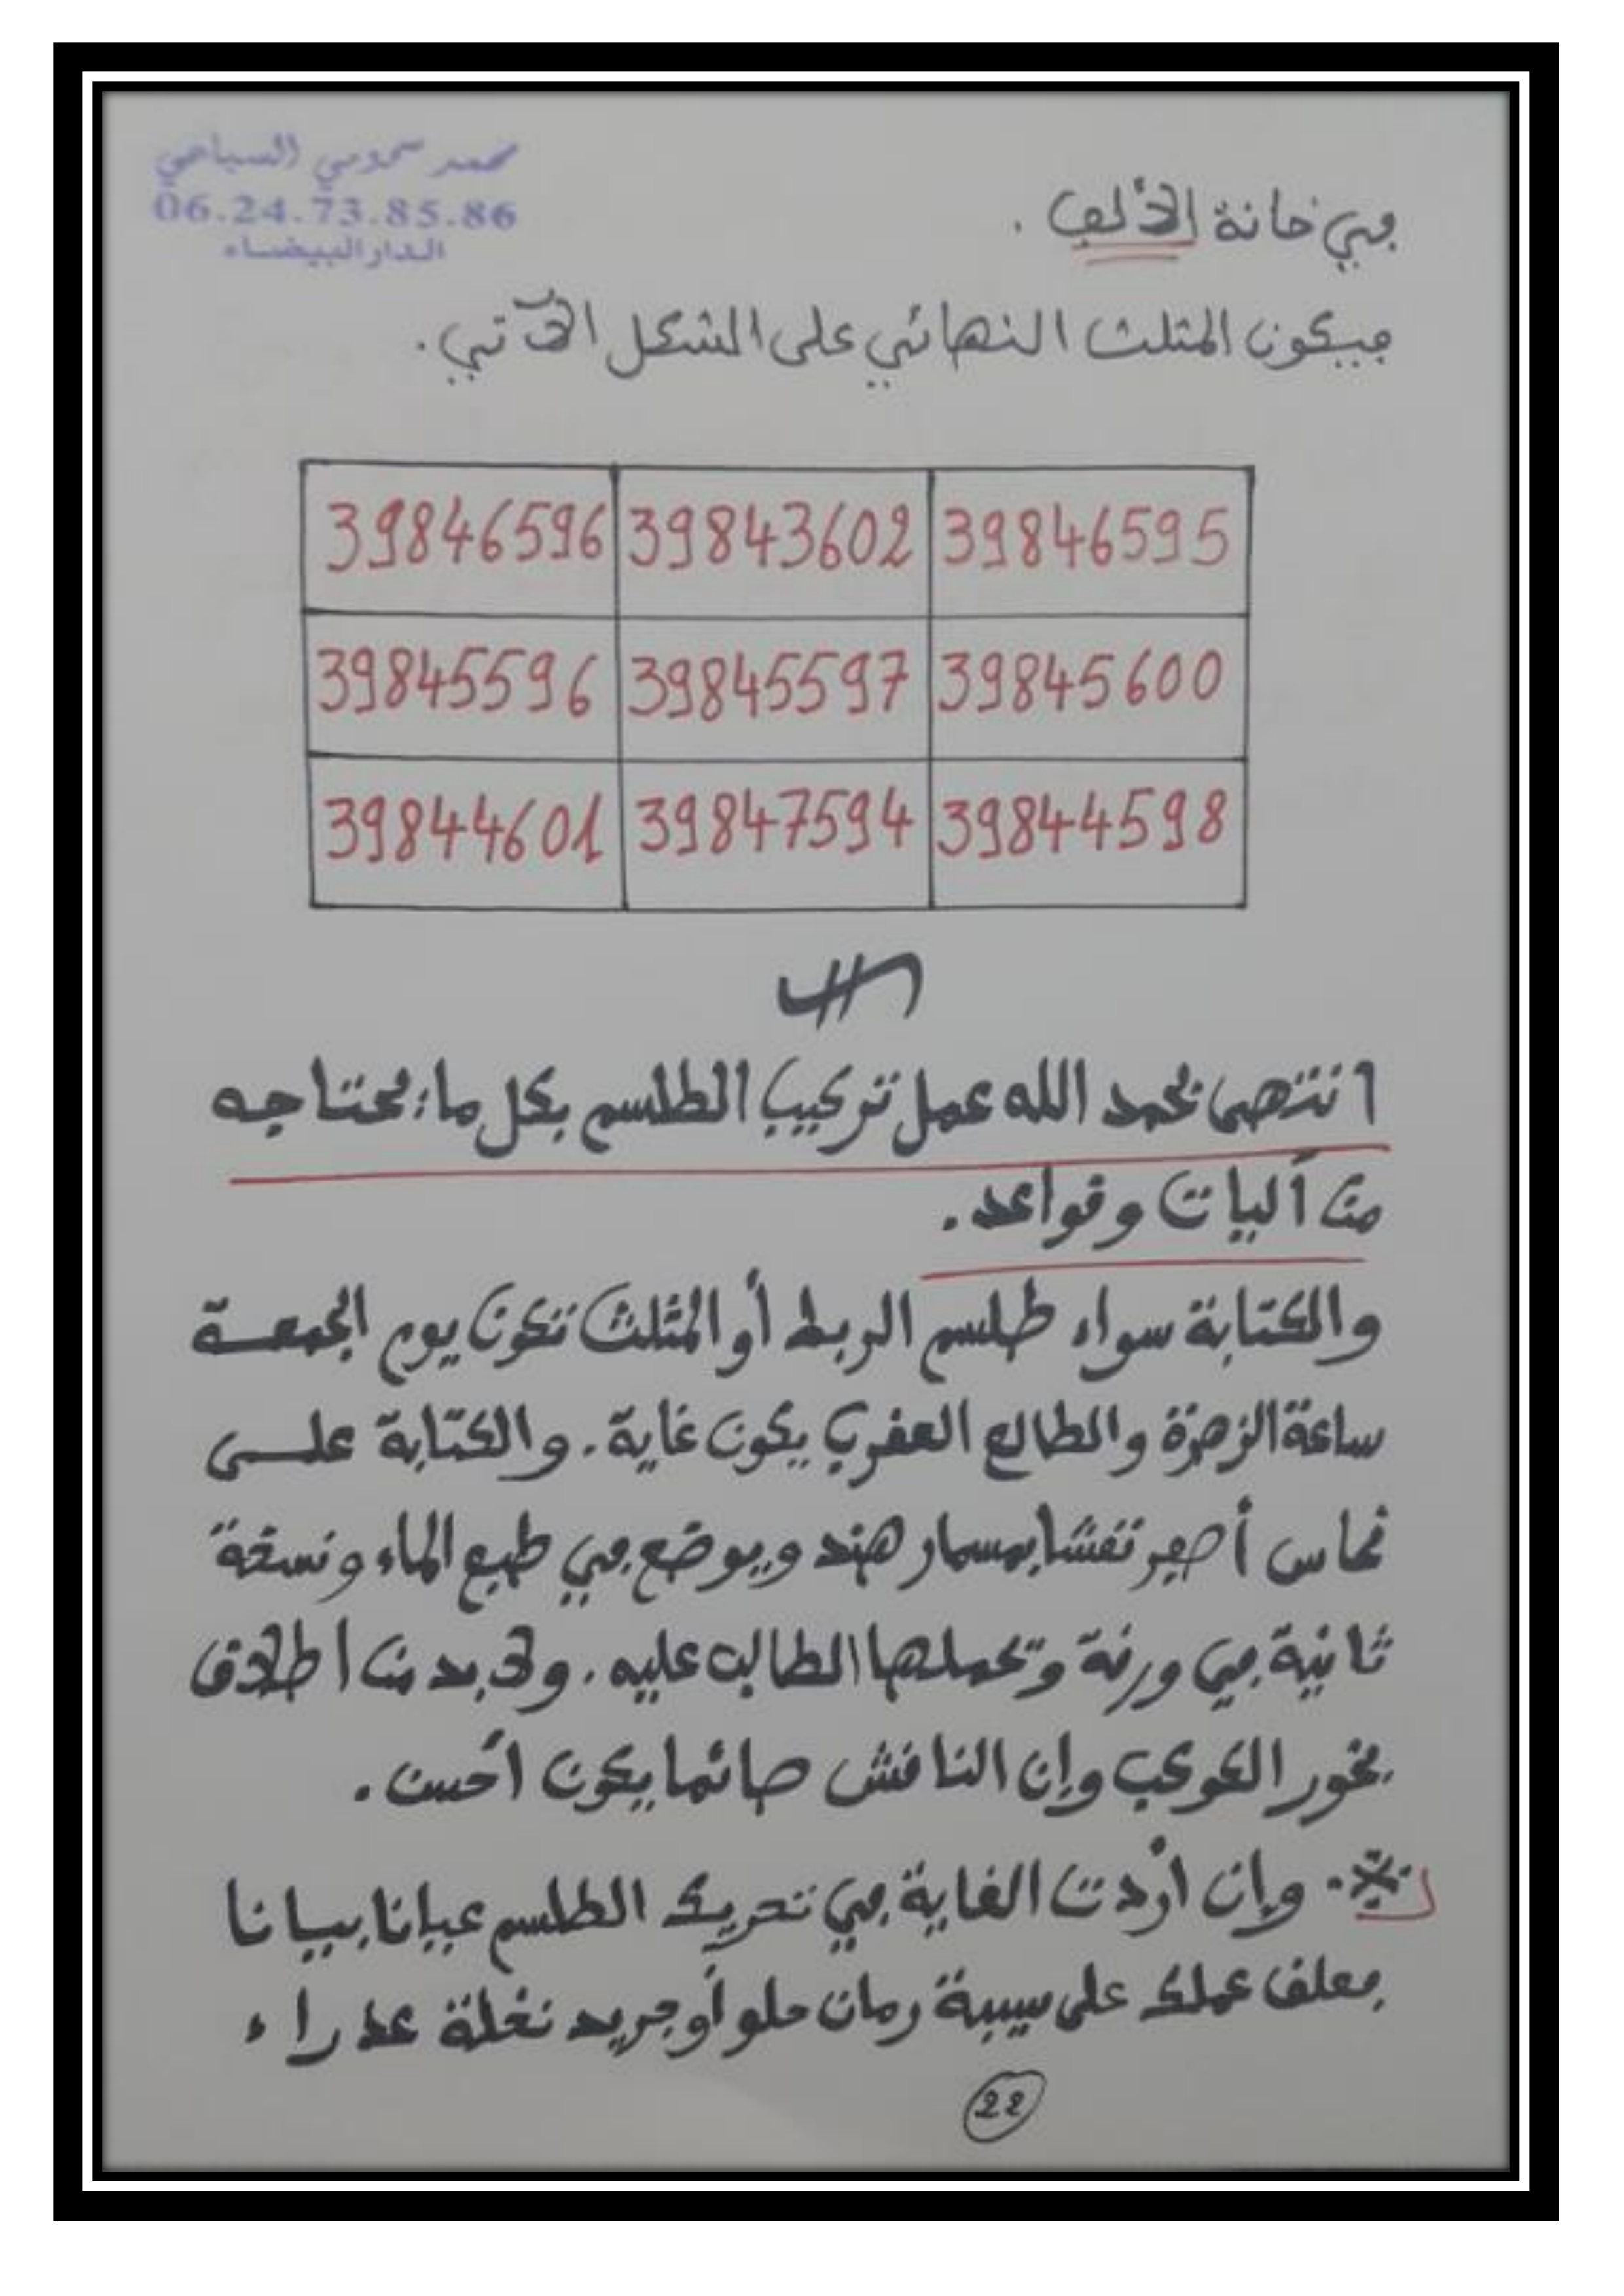 محمد سحومي السباعي
06.24.73.85.86
الدار البيضاء
في خانة الألف .
فيكون المثلث النهائي على الشكل الآتي .
39846596 39843602 39846595
39845596 39845597 39845600
39844601 39847594 39844598
انتهى بحمد الله عمل تركيب الطلسم بكل ما يحتاجه
من آليات وقواعد .
والكتابة سواء طلسم الربط أو المثلث تكون يوم الجمعة
ساعة الزهرة والطالع العقرب يكون غاية . والكتابة على
نحاس أصفر نقشا بمسمار هند ويوضع في طبع الماء ونسخة
ثانية في ورقة وتحملها الطالب عليه . ولا بد من اطلاق
بخور الكوكب وإن الناقش صائما يكون أحسن .
وإن أردت الغاية في تحريك الطلسم عيانا بيانا
فعلق عملك على سيبة رمان حلو أو جريد نخلة عذراء
22